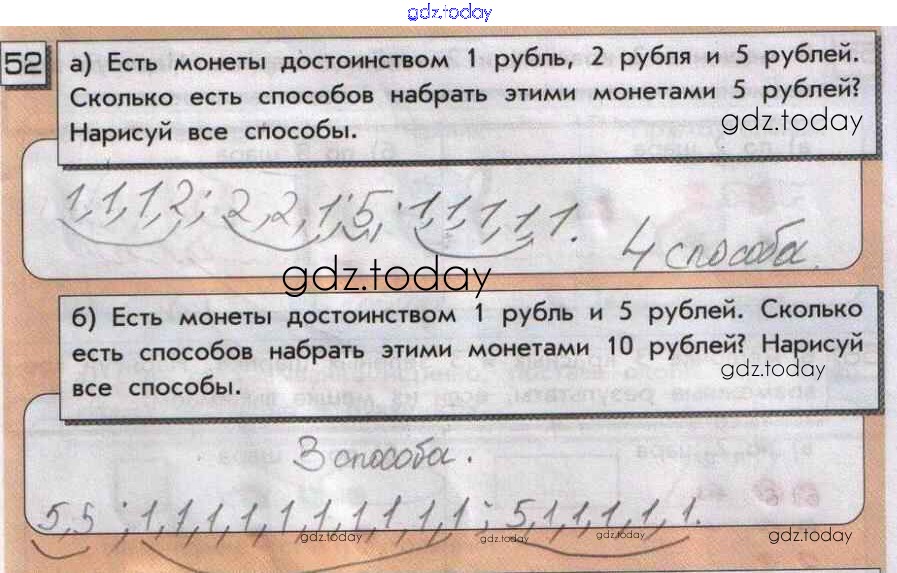 gdz.today
52
а) Есть монеты достоинством 1 рубль, 2 рубля и 5 рублей.
Сколько есть способов набрать этими монетами 5 рублей?
Нарисуй все способы.
gdz.today
1,1,1,2; 2,2,1; 5; 1,1,1,1,1.
4 способа.
gdz.today
б) Есть монеты достоинством 1 рубль и 5 рублей. Сколько
есть способов набрать этими монетами 10 рублей? Нарисуй
все способы.
gdz.today
3 способа.
5,5 ; 1,1,1,1,1,1,1,1,1,1 ; 5,1,1,1,1,1.
gdz.today
gdz.today
gdz.today
gdz.today